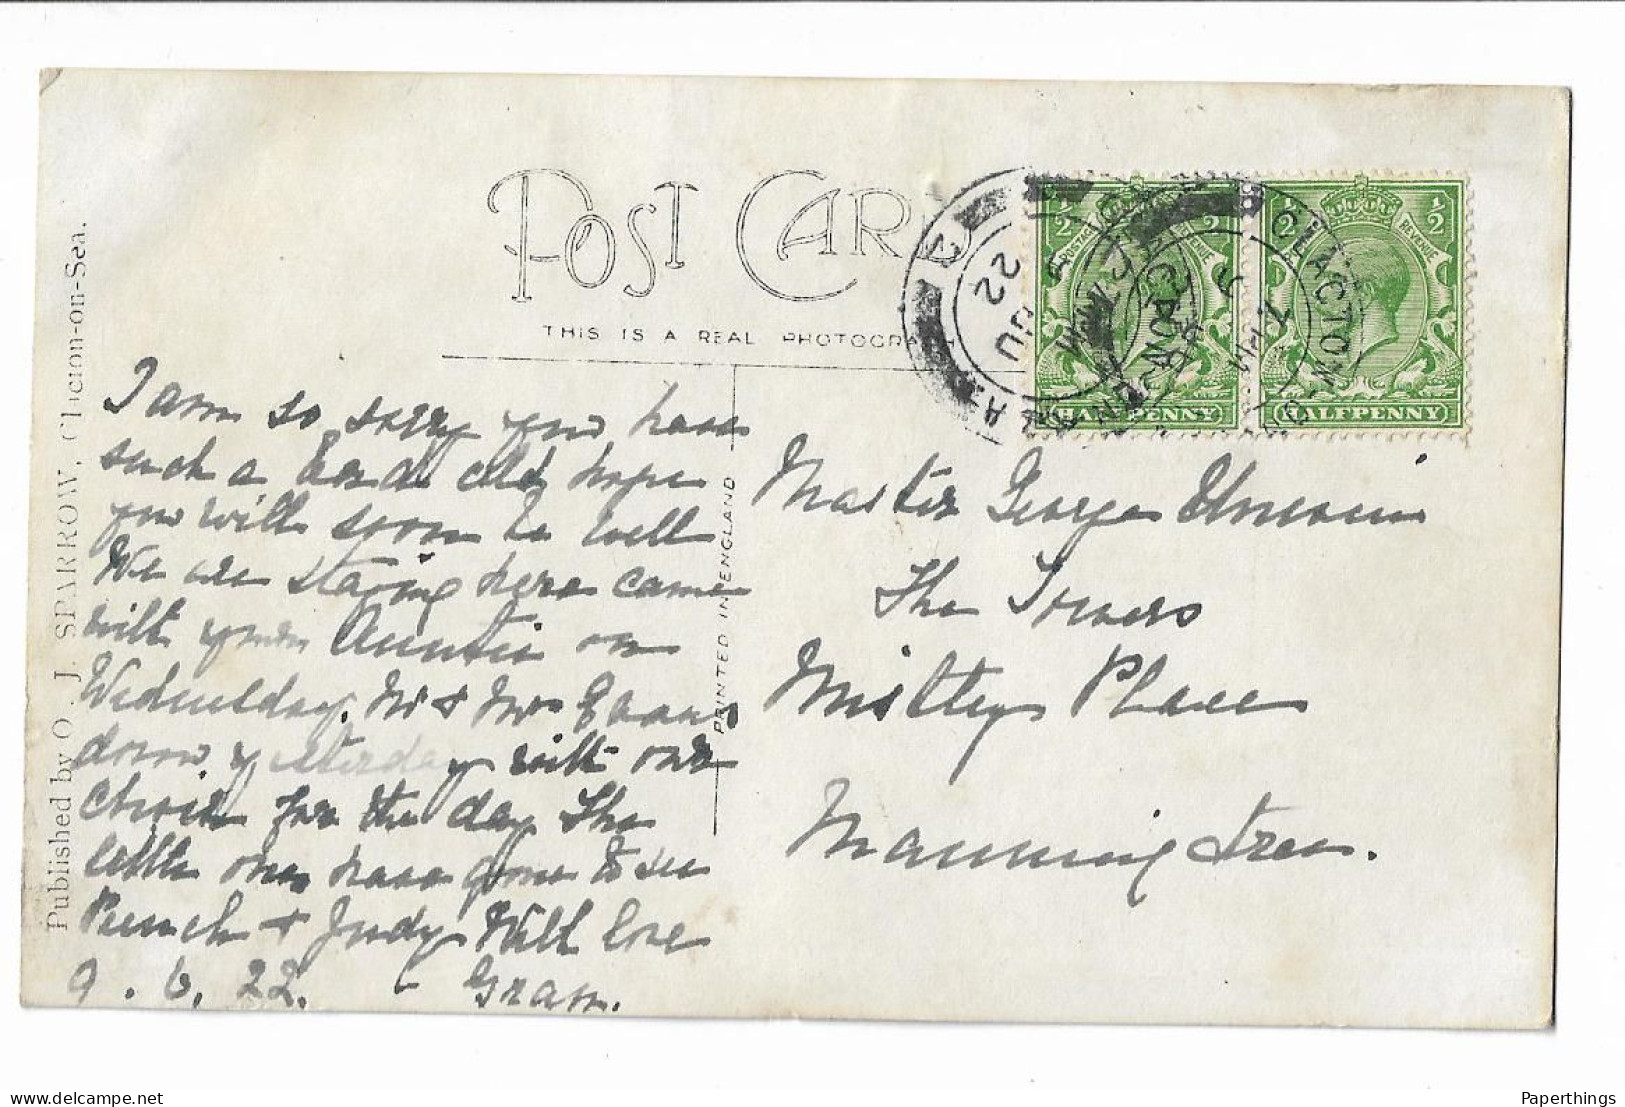 POST CARD
THIS IS A REAL PHOTOGRAPH
Published by O. J. SPARROW, Clacton-on-Sea.
PRINTED IN ENGLAND
I am so sorry you have
such a bad cold hope
you will soon be well
We are staying here came
with your Auntie on
Wednesday. Mr & Mrs Evans
down yesterday with our
choir for the day The
little ones have gone to see
Punch & Judy With love
9.6.22. Gran.
Master George
The Towers
Mistley Place
Manningtree.
1/2 1/2
POSTAGE REVENUE
HALFPENNY
1/2 1/2
REVENUE
HALFPENNY
CLACTON
22
Paperthings